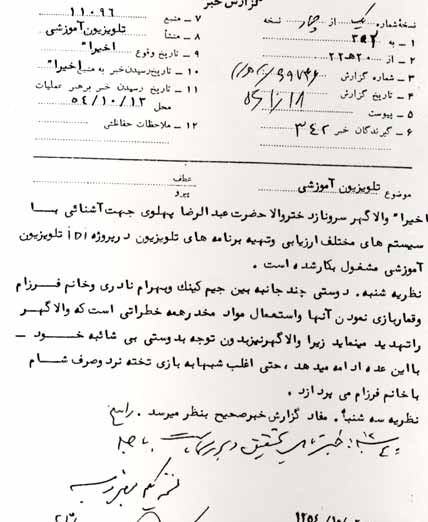 گزارش خبر
نسخه شماره یک از چهار نسخه
۱ – به ۳۵۲
۲ – از ۲۰هـ۲۲
۳ – شماره گزارش
۴ – تاریخ گزارش
۵ – پیوست
۶ – گیرندگان خبر ۳۴۲
۷ – منبع ۱۱۰۹۶
۸ – منشأ تلویزیون آموزشی
۹ – تاریخ وقوع اخیرا"
۱۰ – تاریخ رسیدن خبر به منبع اخیرا"
۱۱ – تاریخ رسیدن خبر برهبر عملیات
محل ۵۴/۱۰/۱۳
۱۲ – ملاحظات حفاظتی
موضوع تلویزیون آموزشی
عطف
پیرو
اخیرا" والاگهر سرونازد ختروالاحضرت عبدالرضا پهلوی جهت آشنائی بــا
سیستم های مختلف ارزیابی وتهیه برنامه های تلویزیون درپروژه iDi تلویزیون
آموزشی مشغول بکارشده است .
نظریه شنبه . دوستی چند جانبه بین جیم کینك وبهرام نادری وخانم فــرزام
وقماربازی نمودن آنها واستعمال مواد مخدرهمه خطراتی است که والاگهــر
راتهدید مینماید زیرا والاگهرنیزبدون توجه بدوستی بی شائبه خــود –
بااین عده ادامه میدهد ، حتی اغلب شبهابه بازی تخته نرد وصرف شــام
باخانم فرزام می پردازد .
نظریه سه شنبه . مفاد گزارش خبرصحیح بنظر میرسد . راسخ